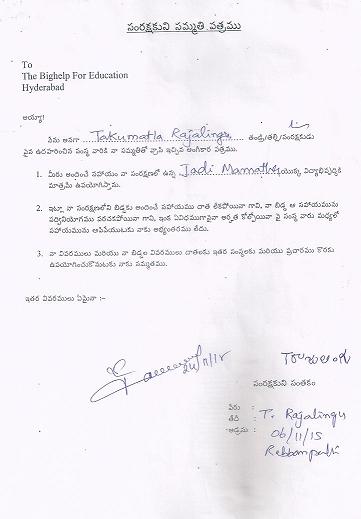 సంరక్షకుని సమ్మతి పత్రము
To
The Bighelp For Education
Hyderabad
అయ్యా!
నేను అనగా Takumatla Rajalingu తండ్రి/తల్లి/సంరక్షకుడు
పైన ఉదహరించిన సంస్థ వారికి నా సమ్మతితో వ్రాసి ఇచ్చిన అంగీకార పత్రము.
1. మీరు అందించే సహాయం నా సంరక్షణలో ఉన్న Jadi Mamatha యొక్క విద్యాభివృద్ధికి
మాత్రమే ఉపయోగిస్తాను.
2. ఇట్లా నా సంరక్షణలోని బిడ్డకు అందించే సహాయము దాత లేకపోయినా గాని, నా బిడ్డ ఆ సహాయమును
సద్వినియోగము పరచకపోయినా గాని, ఇంక ఏవిధముగానైనా అర్హత కోల్పోయినా పై సంస్థ వారు మధ్యలో
సహాయమును ఆపివేయుటకు నాకు అభ్యంతరము లేదు.
3. నా వివరములు మరియు నా బిడ్డల వివరములు దాతలకు ఇతర సంస్థలకు మరియు ప్రచారము కొరకు
ఉపయోగించుకొనుటకు నాకు సమ్మతము.
ఇతర వివరములు ఏమైనా :-
సంరక్షకుని సంతకం
పేరు : T. Rajalingu
తేదీ : 06/11/15
అడ్రసు :